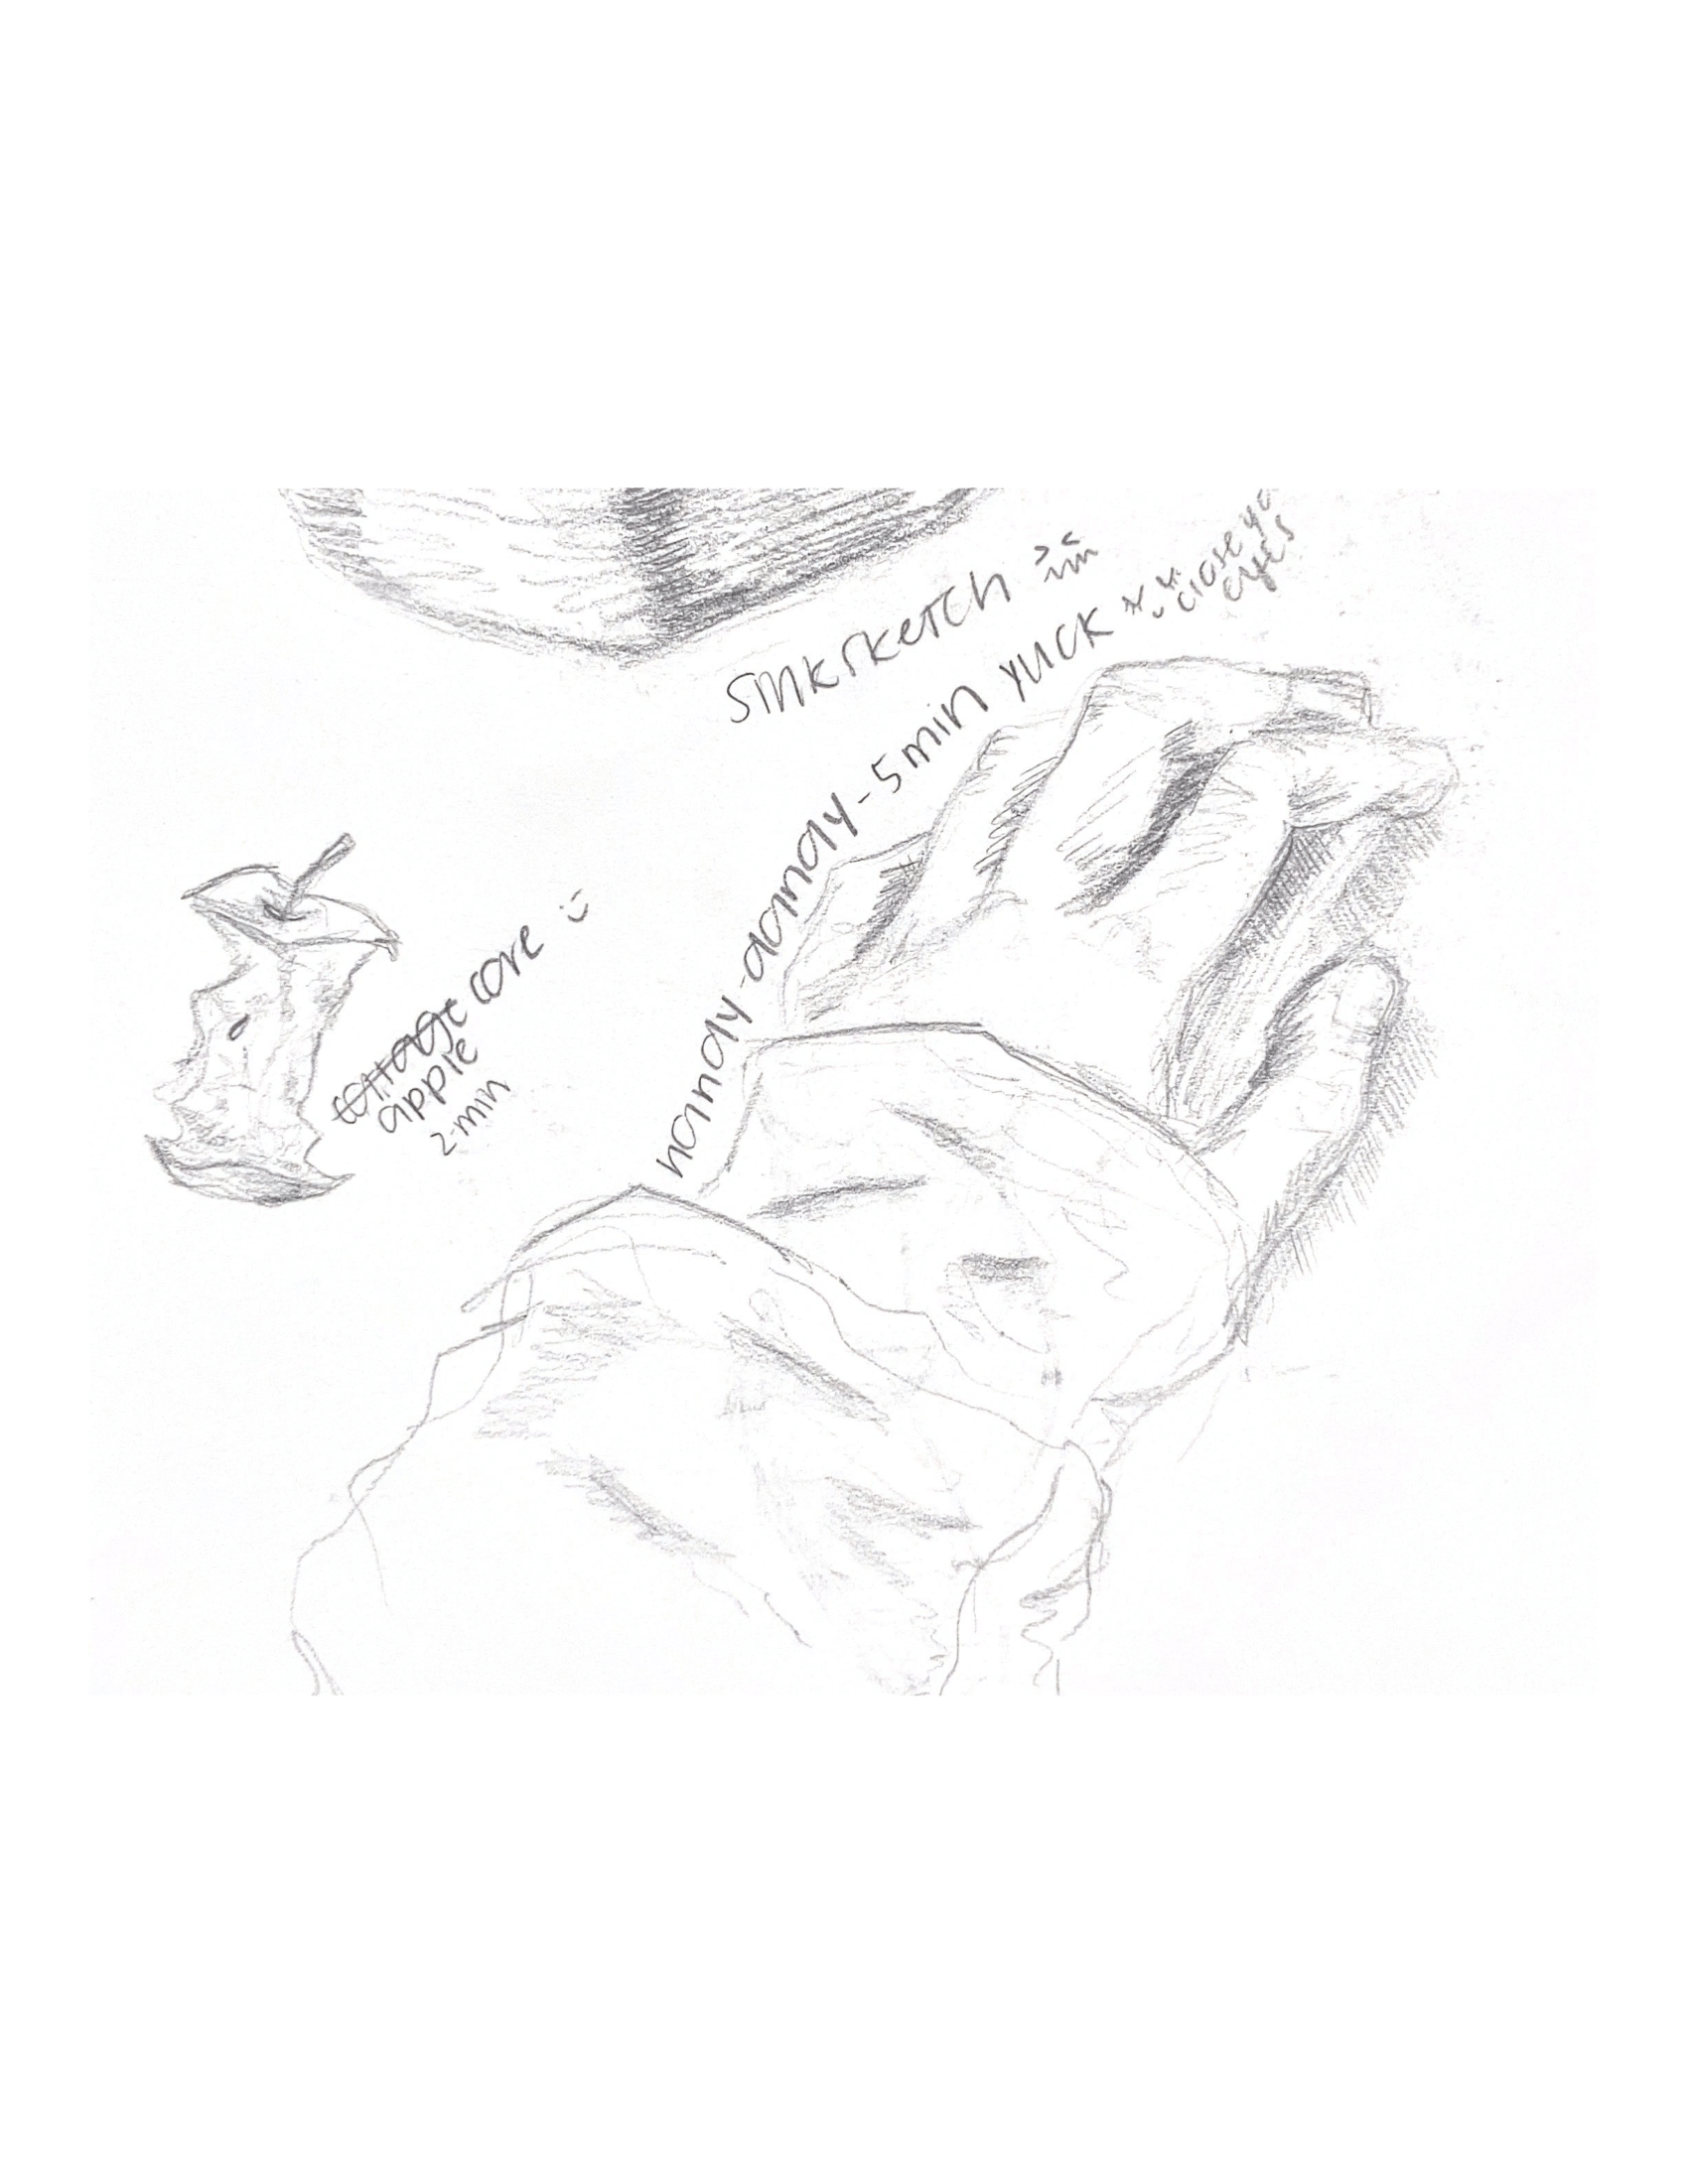 sink sketch
handy-dandy - 5 min yuck
close yo
eyes
core :)
apple
2-min